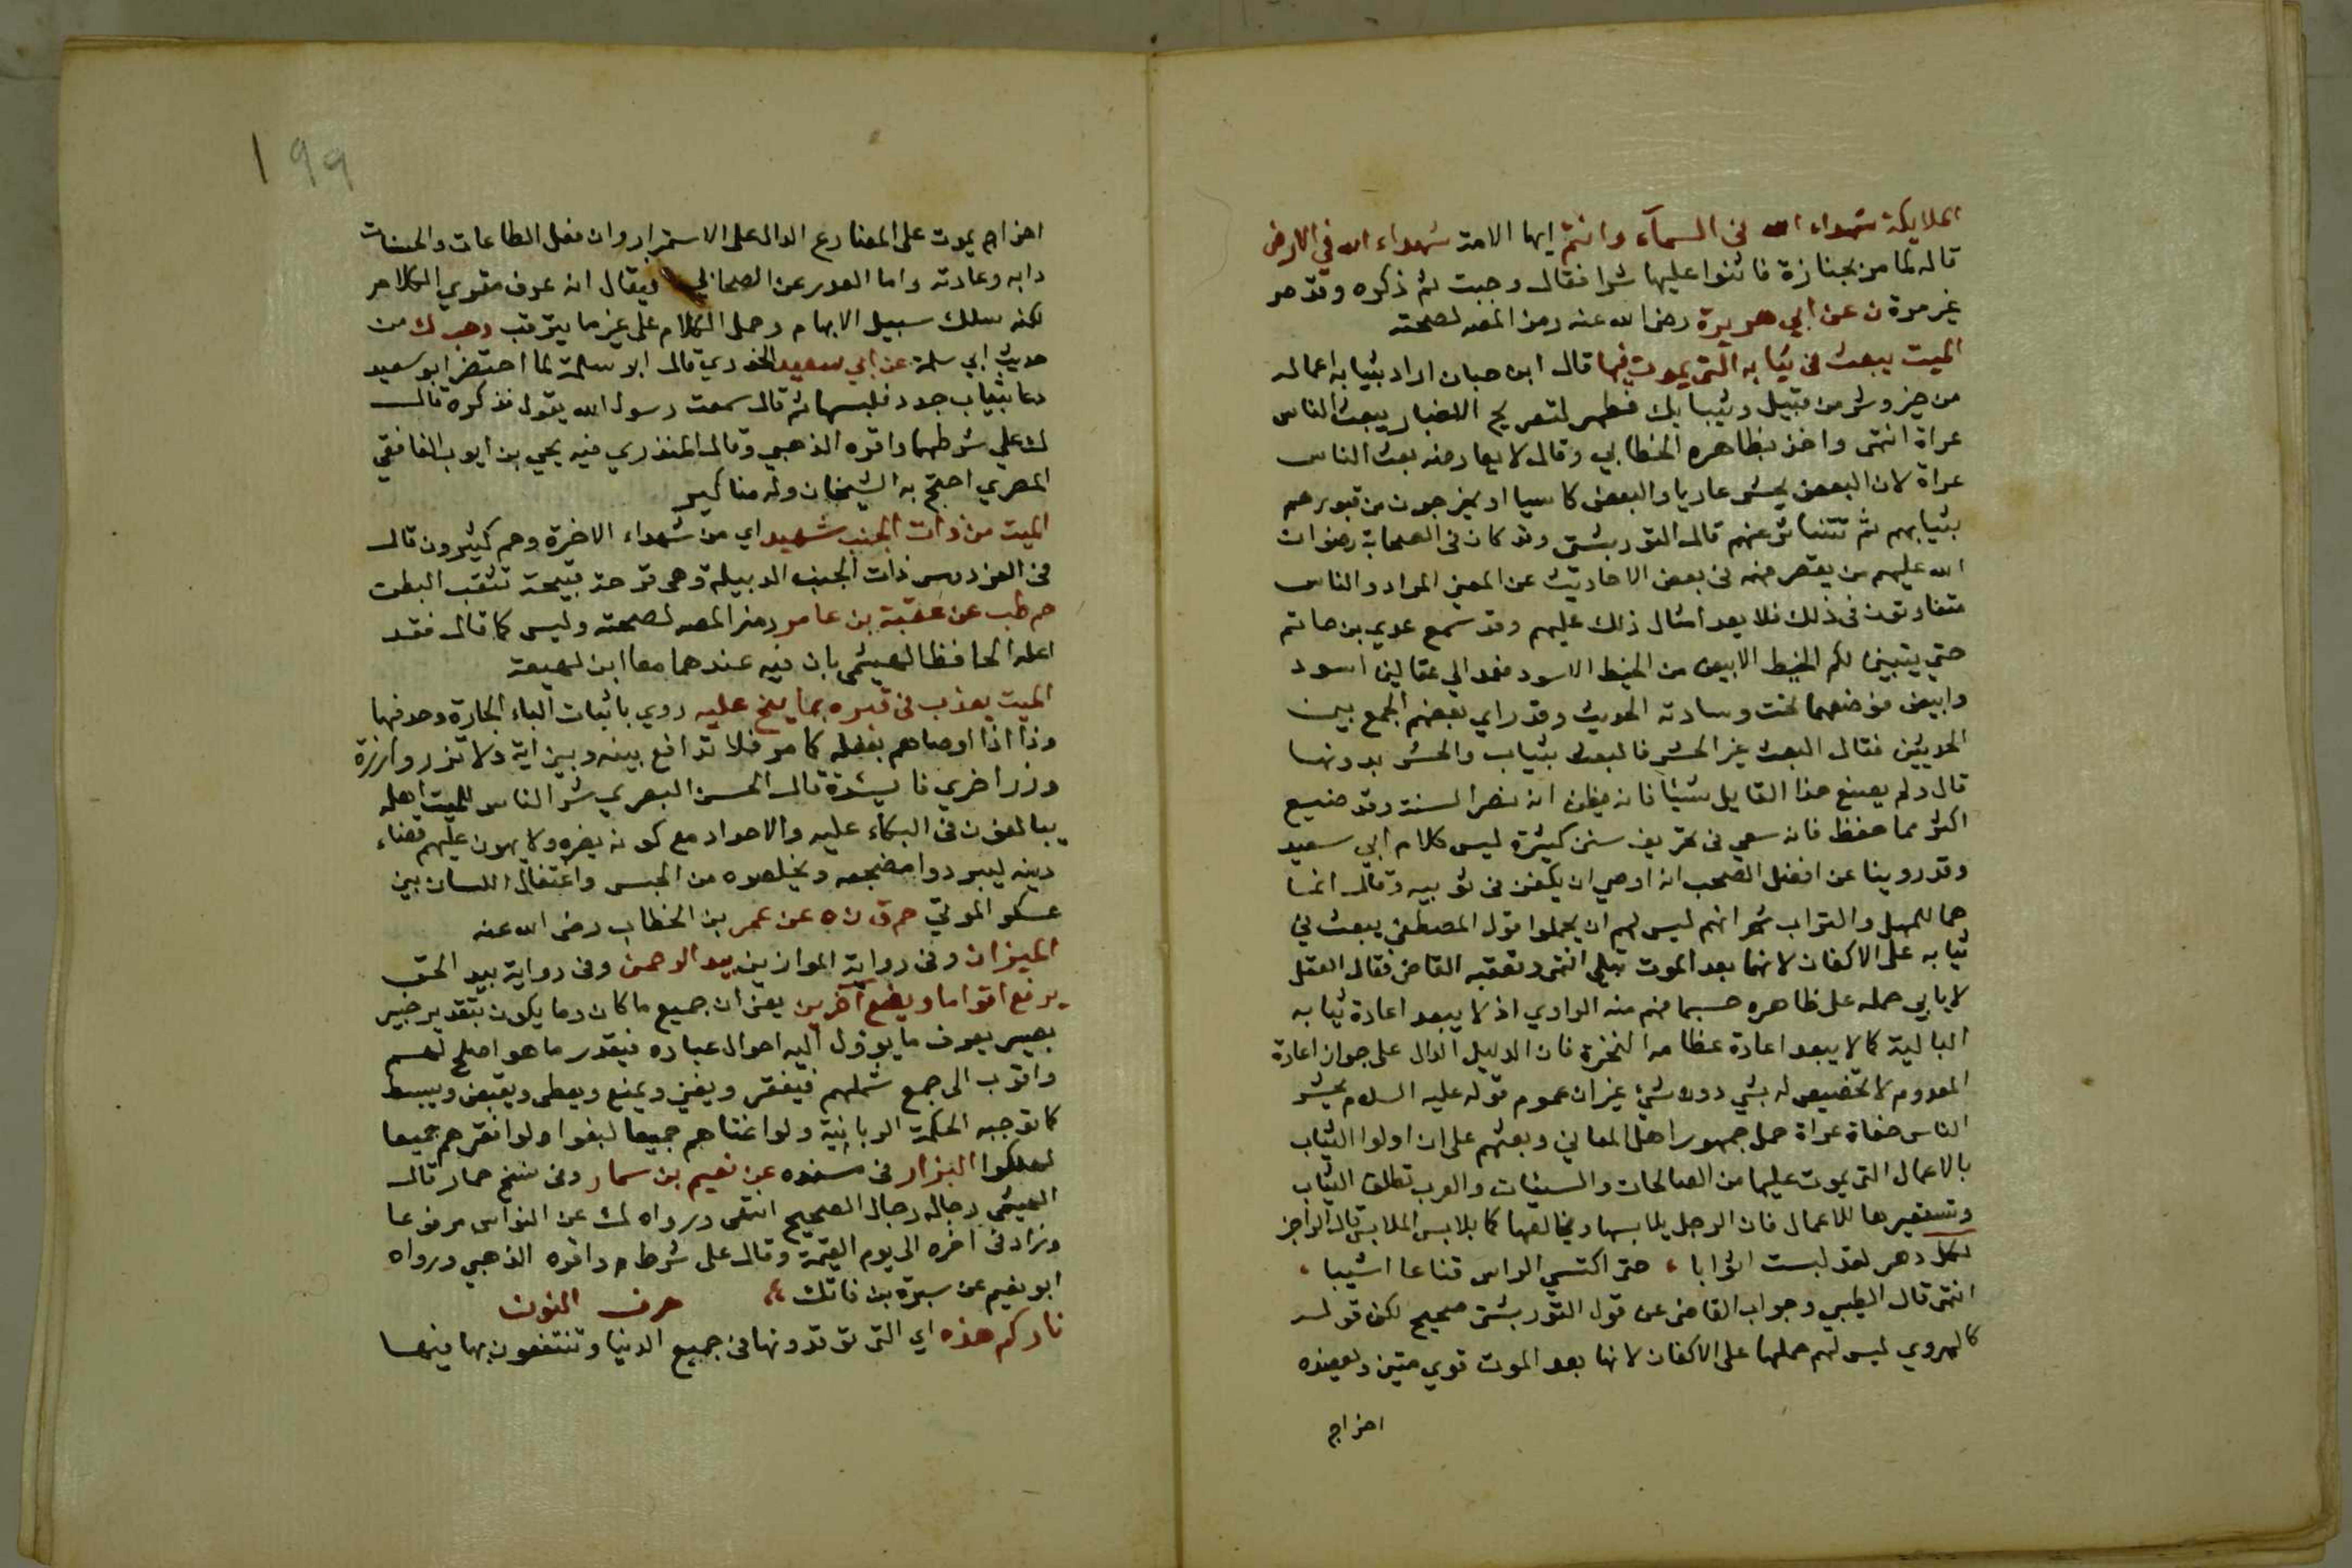 الملايكة شهداء الله في السمآء وانتم ايها الامة شهداء الله في الارض
قاله لما مر بجنازة فاثنوا عليها شرا فقال وجبت ثم ذكره وقد مر
غير مرة ن عن ابي هريرة رضى الله عنه رمز المص لصحته
الميت يبعث فى ثيابه التى يموت فيها قال ابن حبان اراد بثيابه اعماله
من خير وشر من قبيل وثيابك فطهر لتصريح الاخبار يبعث الناس
عراة انتهى واخذ بظاهره الخطابي وقال لا يعارضه بعث الناس
عراة لان البعض يحشر عاريا والبعض كاسيا او يخرجون من قبورهم
بثيابهم ثم تتناثر عنهم قال التوربشتى وقد كان فى الصحابة رضوان
الله عليهم من يقصر فهمه فى بعض الاحاديث عن المعنى المراد والناس
متفاوتون فى ذلك فلا يعد امثال ذلك عليهم وقد سمع عدي بن حاتم
حتي يتبين لكم الخيط الابيض من الخيط الاسود فعمد الي عقالين اسود
وابيض فوضعهما تحت وسادته الحديث وقد راي بعضهم الجمع بين
الحديثين فقال البعث غير الحشر فالبعث بثياب والحشر بدونها
قال ولم يصنع هذا القايل شيئا فانه يظن انه نصر السنة وقد ضيع
اكثر مما حفظ فانه سعي فى تحريف سنن كثيرة ليس كلام ابي سعيد
وقد روينا عن افضل الصحب انه اوصي ان يكفن فى ثوبيه وقال انما
هما للمهل والتراب ثم انهم ليس لهم ان يحملوا قول المصطفي يبعث في
ثيابه على الاكفان لانها بعد الموت تبلى انتهى وتعقبه القاضى فقال العقل
لا يابي حمله على ظاهره حسبما فهم منه الراوي اذ لا يبعد اعادة ثيابه
البالية كما لا يبعد اعادة عظامه النخرة فان الدليل الدال على جواز اعادة
المعدوم لا تخصيص له بشي دون شيء غير ان عموم قوله عليه السلام يحشر
الناس حفاة عراة حمل جمهور اهل المعاني وبعثهم على ان اولوا الثياب
بالاعمال التى يموت عليها من الصالحات والسيئات والعرب تطلق الثياب
وتستعيرها للاعمال فان الرجل يلابسها ويخالطها كما يلابس الملابس قال الراجز
لكل دهر لقد لبست اثوابا ، حتى اكتسي الراس قناعا اشيبا ،
انتهى قال الطيبي وجواب القاضى عن قول التوربشتى صحيح لكن قوله
كالهروي ليس لهم حملها على الاكفان لانها بعد الموت قوي متين ويعضده
اخراج
199
اخراج يموت على المضارع الدال على الاستمرار وان فعل الطاعات والحسنات
دابه وعادته واما العدر عن الصحابي فيقال انه عرف مقزي الكلام
لكنه سلك سبيل الابهام وحمل الكلام على غير ما يترقب د حب ك من
حديث ابي سلمة عن ابي سعيد الخدري قال ابو سلمة لما احتضر ابو سعيد
دعا بثياب جدد فلبسها ثم قال سمعت رسول الله يقول فذكره قال
ك علي شرطهما واقره الذهبي وقال المنذري فيه يحي بن ايوب الغافقي
المصري احتج به الشيخان وله مناكير
الميت من ذات الجنب شهيد اي من شهداء الاخرة وهم كثيرون قال
فى الفردوس ذات الجنب الدبيلة وهى قرحة قبيحة تثقب البطن
حم طب عن عقبة بن عامر رمز المص لصحته وليس كما قال فقد
اعله الحافظ الهيثمى بان فيه عندهما معا ابن لهيعة
الميت يعذب فى قبره بما ينح عليه روي باثبات الباء الجارة وحذفها
وذا اذا اوصاهم بفعله كما مر فلا تدافع بينه وبين اية ولا تزر وازرة
وزر اخري فايدة قال الحسن البصري شر الناس للميت اهله
يبالغون فى البكاء عليه والاحداد مع كونه يضره ولا يهون عليهم قضاء
دينه ليبردوا مضجعه ويخلصوه من الحبس واعتقال اللسان بين
عسكر الموتي حم ق ن ه عن عمر بن الخطاب رضى الله عنه
الميزان وفى رواية الموازين بيد الرحمن وفى رواية بيد الحق
يرفع اقواما ويضع آخرين يعني ان جميع ما كان وما يكون بتقدير خبير
بصير يعرف ما يؤول اليه احوال عباده فيقدر ما هو اصلح لهم
واقرب الى جمع شملهم فيفقر ويغني ويمنع ويعطى ويقبض ويبسط
كما توجبه الحكمة الربانية ولو اغناهم جميعا لبغوا ولو افقرهم جميعا
لهلكوا البزار فى مسنده عن نعيم بن سمار وفى نسخ حمار قال
الهيثمى رجاله رجال الصحيح انتهى ورواه ك عن النواس مرفوعا
وزاد فى اخره الى يوم القيمة وقال على شرط م واقره الذهبي ورواه
ابو نعيم عن سبرة بن فاتك حرف النون
ناركم هذه اي التى توقدونها فى جميع الدنيا وتنتفعون بها فيها